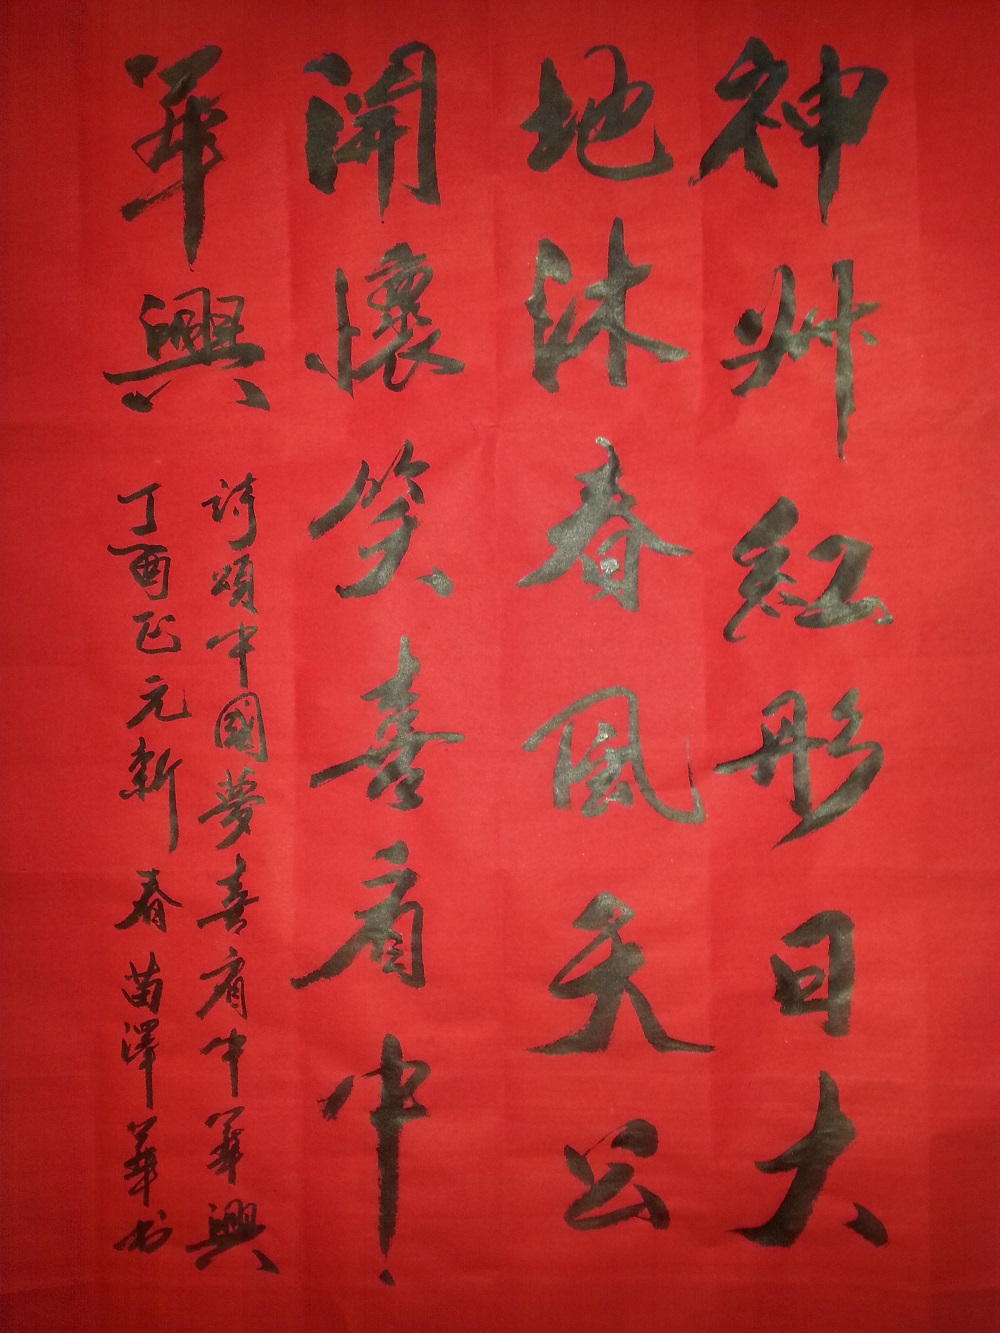 神州紅彤日大
地沐春風天公
開懷笑喜看中
華興
詩頌中國夢喜看中華興
丁酉正元新春苗澤華书